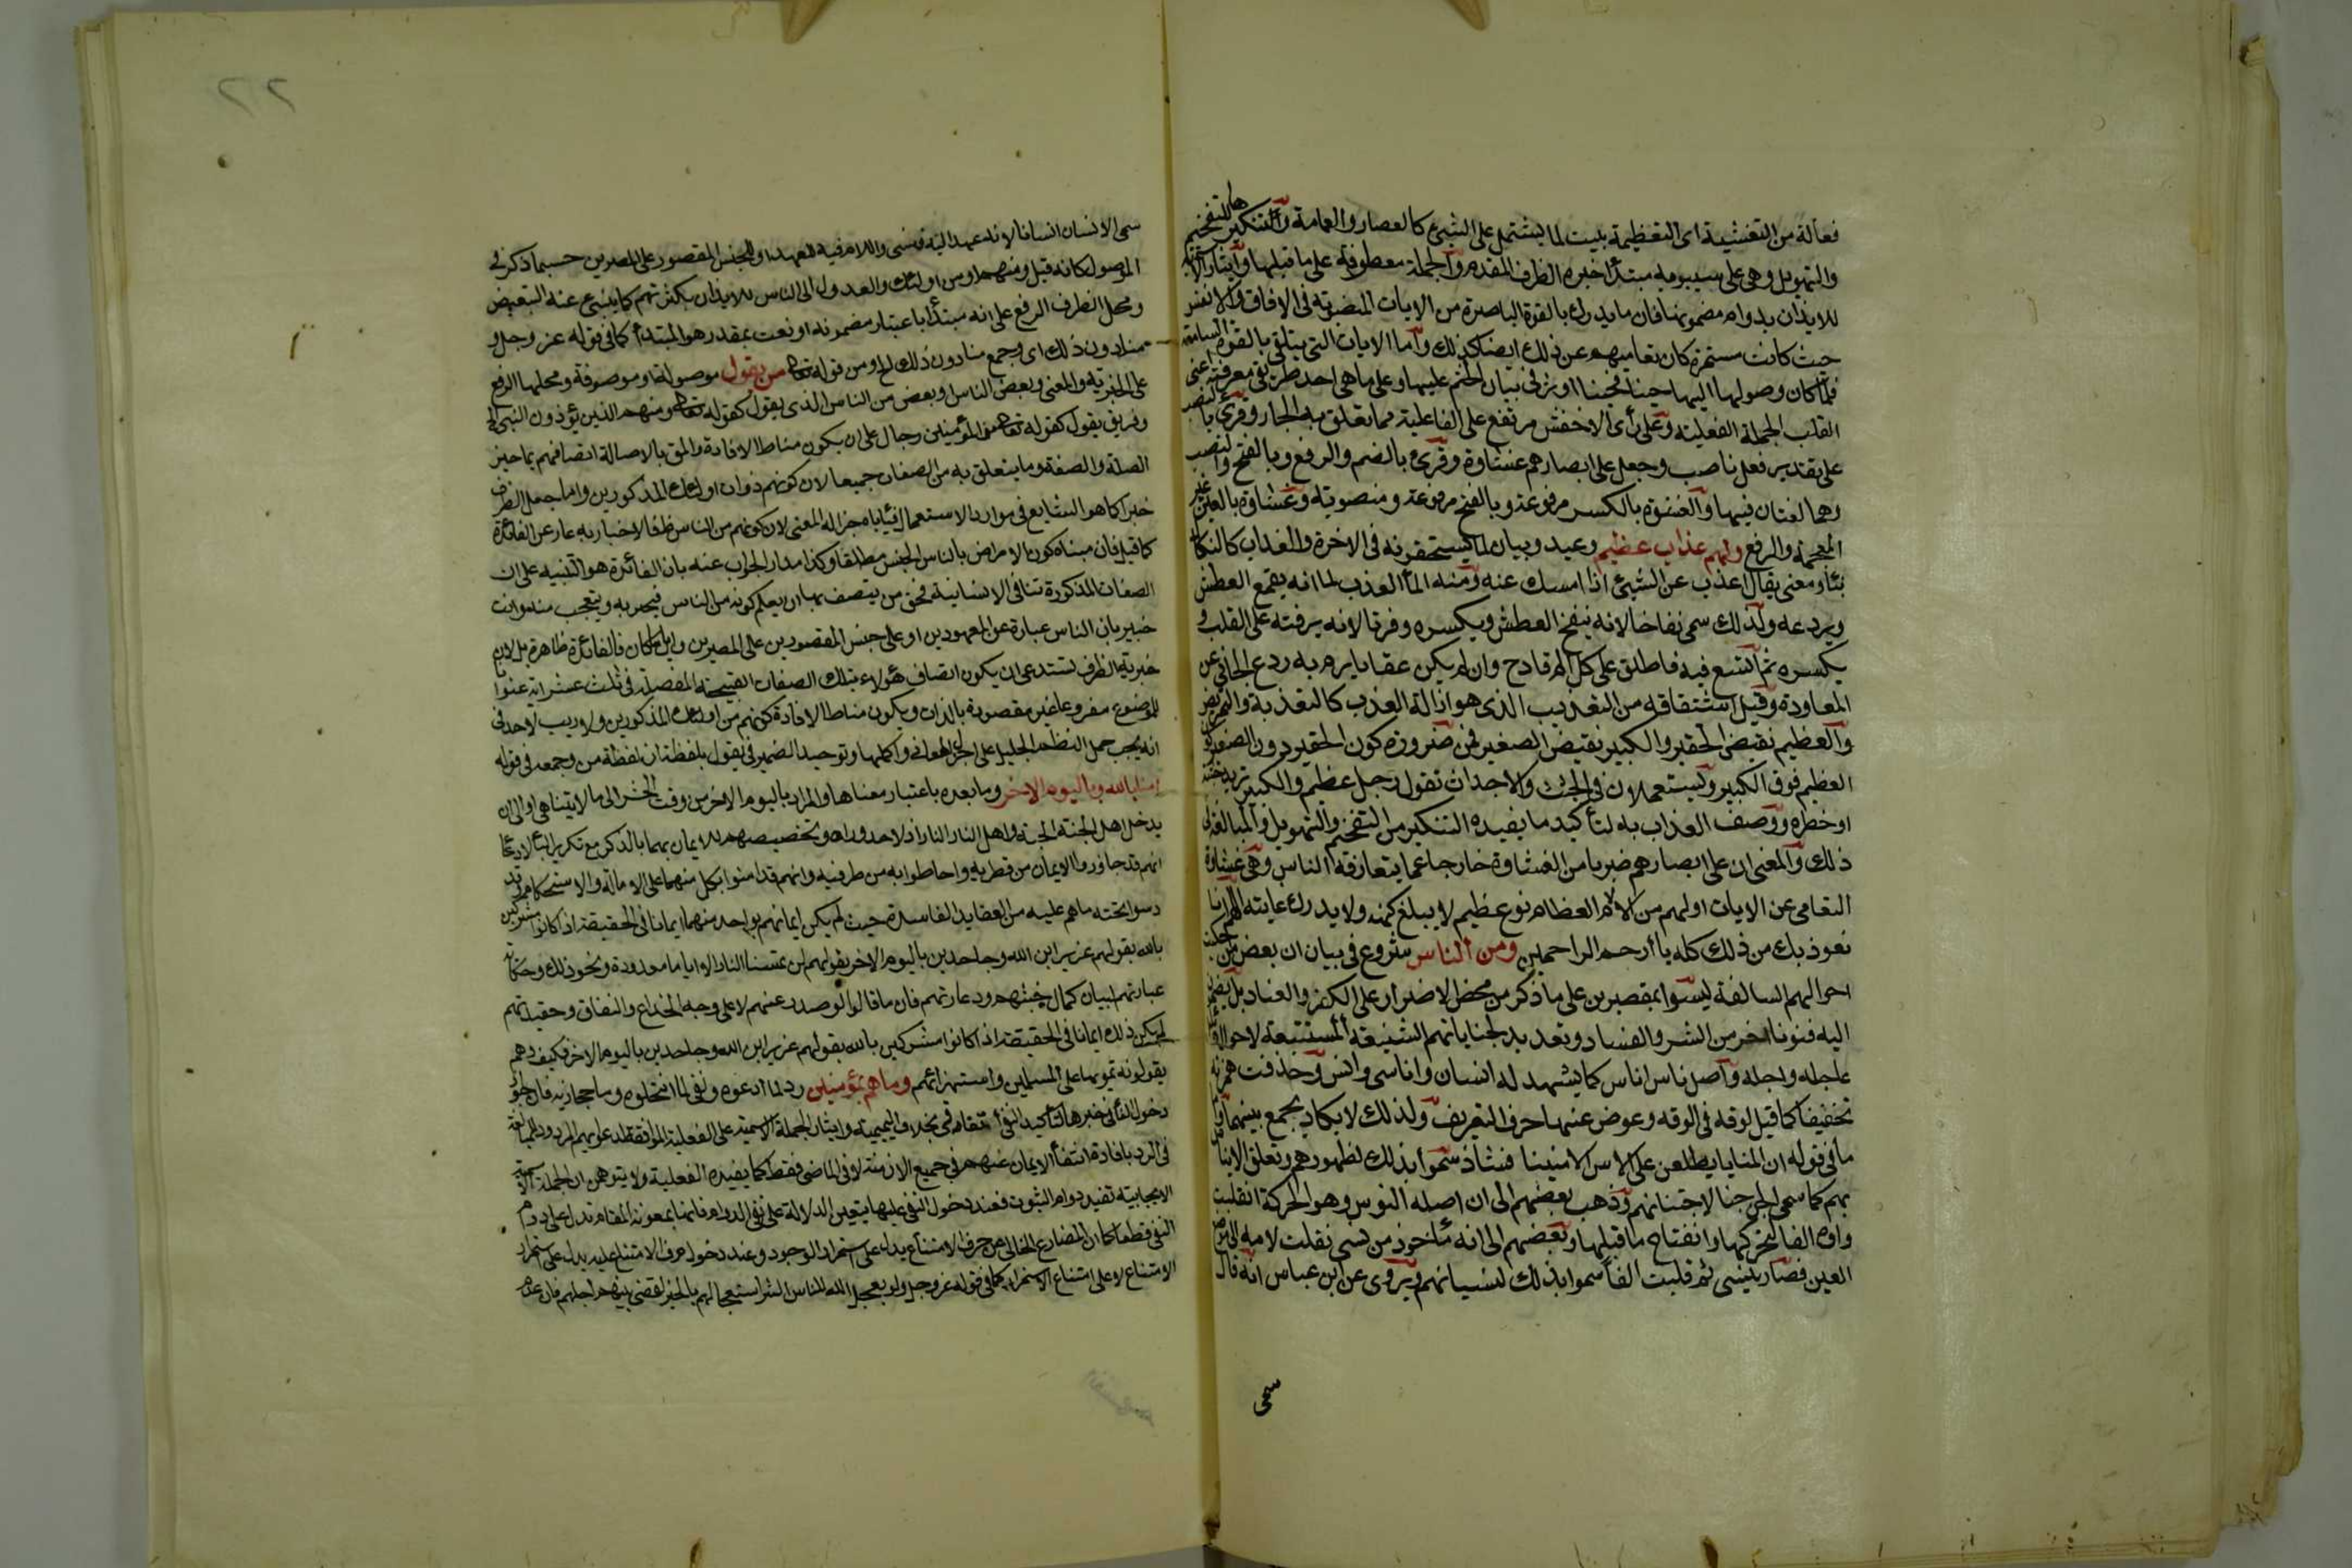 فعالة من التغشية اى التغطية بنيت لما يشتمل على الشيئ كالعصابة والعمامة وتنكيرها للتفخيم
والتهويل وهى على سيبويه مبتدأ خبره الظرف المقدم والجملة معطوفة على ما قبلها وايثار الاسمية
للايذان بدوام مضمونها فان ما يدرك بالقوة الباصرة من الايات المنصوبة فى الافاق والانفس
حيث كانت مستمرة كان تعاميهم عن ذلك ايضا كذلك واما الايات التى تتلقى بالقوة السامعة
فلما كان وصولها اليها حينا فحينا اوثر فى بيان الختم عليها وعلى ما هى احد طريقى معرفته اعنى
القلب الجملة الفعلية وعلى رأى الاخفش مرتفع على الفاعلية مما تعلق به الجار وقرئ بالنصب
على تقدير فعل ناصب وجعل على ابصارهم غشاوة وقرئ بالضم والرفع وبالفتح والنصب
وهما لغتان فيها والغشوة بالكسر مرفوعة وبالفتح مرفوعة ومنصوبة وعشاوة بالعين غير
المعجمة والرفع ولهم عذاب عظيم وعيد وبيان لما يستحقونه فى الاخرة والعذاب كالنكال
بناء ومعنى يقال اعذب عن الشيئ اذا امسك عنه ومنه الماء العذب لما انه يقمع العطش
ويردعه ولذلك سمى نقاخا لانه ينقخ العطش ويكسره وفراتا لانه يرفته على القلب و
يكسره ثم اتسع فيه فاطلق على كل الم قادح وان لم يكن عقابا يراد به ردع الجانى عن
المعاودة وقيل اشتقاقه من التعذيب الذى هو ازالة العذب كالتقذية والتمريض
والعظيم نقيض الحقير والكبير نقيض الصغير فمن ضرورة كون الحقير دون الصغير كون
العظيم فوق الكبير ويستعملان فى الجثث والاحداث تقول رجل عظيم وكبير تريد جثته
او خطره ووصف العذاب به لتأكيد ما يفيده التنكير من التفخيم والتهويل والمبالغة فى
ذلك والمعنى ان على ابصارهم ضربا من الغشاوة خارجا عما يتعارفه الناس وهى غشاوة
التعامى عن الايات ولهم من الالام العظام نوع عظيم لا يبلغ كنهه ولا يدرك غايته اللهم انا
نعوذ بك من ذلك كله يا ارحم الراحمين ومن الناس شروع فى بيان ان بعض من حكيت
احوالهم السالفة ليسوا بمقصرين على ما ذكر من محض الاصرار على الكفر والعناد بل يضمون
اليه فنونا اخر من الشر والفساد وتعديد لجناياتهم الشنيعة المستتبعة لاحوال
عاجله واجله واصل ناس اناس كما يشهد له انسان واناسى وانس وحذفت همزته
تخفيفا كما قيل لوقه فى الوقه وعوض عنها حرف التعريف ولذلك لا يكاد يجمع بينهما واما
ما فى قوله ان المنايا يطلعن على الاناس الامنينا فشاذ سموا بذلك لظهورهم وتعلق الايناس
بهم كما سمى الجن جنا لاجتنانهم وذهب بعضهم الى ان اصله النوس وهو الحركة انقلبت
واوه الفا لتحركها وانفتاح ما قبلها وبعضهم الى انه مأخوذ من نسى نقلت لامه الى موضع
العين فصار نيسى ثم قلبت الفا سموا بذلك لنسيانهم ويروى عن ابن عباس انه قال
سمى
٢٢
سمى الانسان انسانا لانه عهد اليه فنسى واللام فيه للعهد او للجنس المقصور على المصرين حسبما ذكر فى
الموصول كانه قيل ومنهم او من اولئك والعدول الى الناس للايذان بكثرتهم كما ينبئ عنه التبعيض
ومحل الظرف الرفع على انه مبتدأ باعتبار مضمونه او نعت بمقدر هو المبتدأ كما فى قوله عز وجل و
منا دون ذلك اى وجمع منا دون ذلك الخ ومن قوله تعالى من يقول موصولة او موصوفة ومحلها الرفع
على الخبرية والمعنى وبعض الناس وبعض من الناس الذى يقول كقوله تعالى ومنهم الذين يؤذون النبى الخ
وفريق يقول كقوله تعالى من المؤمنين رجال على ان يكون مناط الافادة والمق بالاصالة اتصافهم بما حيز
الصلة والصفة وما يتعلق به من الصفات جميعا لان كونهم ذوات اولئك المذكورين واما جعل الظرف
خبرا كما هو الشايع فى موارد الاستعمال فيأباه جزالة المعنى لان كونهم من الناس ظاهر فالاخبار به عار عن الفائدة
كما قيل فان مبناه كون المراد بالناس الجنس مطلقا وكذا مدار الجواب عنه بان الفائدة هو التنبيه على ان
الصفات المذكورة تنافى الانسانية فحق من يتصف بها ان لا يعلم كونه من الناس فيخبر به ويتعجب منه وانت
خبير بان الناس عبارة عن المعهودين او على جنس المقصورين على المصرين وايا ما كان فالفائدة ظاهرة بل لان
خبرية الظرف تستدعى ان يكون اتصاف هؤلاء بتلك الصفات القبيحة المفصلة فى ثلث عشرة اية عنوانا
للموضوع مفروغا عنه غير مقصودة بالذات ويكون مناط الافادة كونهم من اولئك المذكورين ولا ريب لاحد فى
انه يجب حمل النظم الجليل على اجزل المعانى واكملها وتوحيد الضمير فى يقول بلفظه ان لفظة من وجمعه فى قوله
امنا بالله وباليوم الاخر وما بعده باعتبار معناها والمراد باليوم الاخر من وقت الحشر الى ما لا يتناهى او الى ان
يدخل اهل الجنة الجنة واهل النار النار اذ لا حد وراءه وتخصيصهم للايمان بهما بالذكر مع تكرير الباء لادعاء
انهم قد حازوا الايمان من قطريه واحاطوا به من طرفيه وانهم قد امنوا بكل منهما على الاصالة والاستحكام وقد
دسوا تحته ما هم عليه من العقايد الفاسدة حيث لم يكن ايمانهم بواحد منهما ايمانا فى الحقيقة اذ كانوا مشركين
بالله بقولهم عزير ابن الله وجاحدين باليوم الاخر بقولهم لن تمسنا النار الا اياما معدودة ونحو ذلك وحكاية
عبارتهم لبيان كمال خبثهم ودعارتهم فان ما قالوا لو صدر عنهم لا على وجه الخداع والنفاق وعقيدتهم
لم يكن ذلك ايمانا فى الحقيقة اذا كانوا مشركين بالله بقولهم عزير ابن الله وجاحدين باليوم الاخر فكيف وهم
يقولونه تمويها على المسلمين واستهزائهم وما هم بمؤمنين رد لما ادعوه ونفى لما انتحلوه وما حجازية فان جواز
دخول الباء فى خبرها لتأكيد النفى اتفاقى بخلاف التميمية وايثار الجملة الاسمية على الفعلية الموافقة لدعويهم المردودة للمبالغة
فى الرد بافادة انتفاء الايمان عنهم فى جميع الازمنة لا فى الماضى فقط كما يفيده الفعلية ولا يتوهمن ان الجملة الاسمية
الايجابية تفيد دوام الثبوت فعند دخول النفى عليها يتعين الدلالة على نفى الدوام فانها بمعونة المقام تدل على دوام
النفى قطعا كما ان المضارع الخالى عن حرف الامتناع يدل على استمرار الوجود وعند دخول حرف الامتناع عليه يدل على استمرار
الامتناع لا على امتناع الاستمرار كما فى قوله عز وجل ولو يعجل الله للناس الشر استعجالهم بالخير لقضى اليهم اجلهم فان عدم